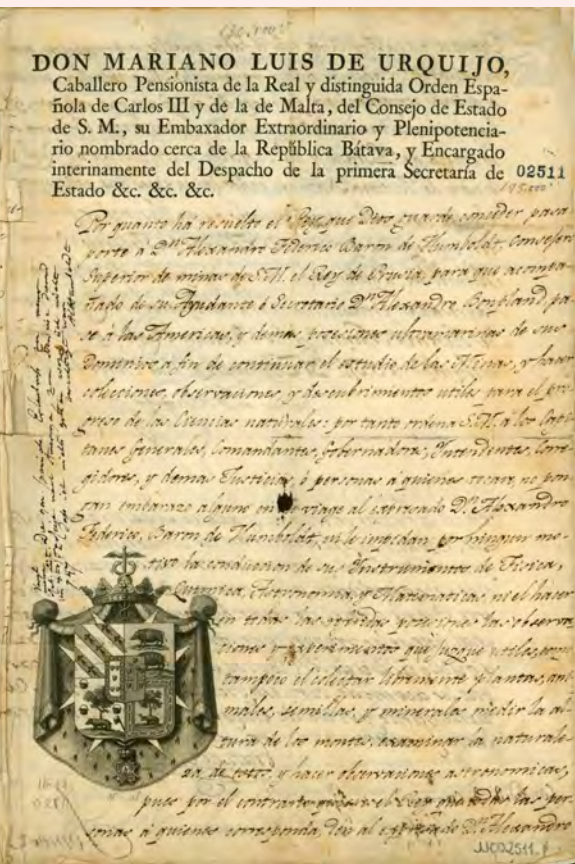 DON MARIANO LUIS DE URQUIJO,
Caballero Pensionista de la Real y distinguida Orden Espa-
ñola de Carlos III y de la de Malta, del Consejo de Estado
de S. M., su Embaxador Extraordinario y Plenipotencia-
rio nombrado cerca de la República Bátava, y Encargado
interinamente del Despacho de la primera Secretaría de
Estado &c. &c. &c.
02511
Por quanto ha resuelto el Rey, que Dios guarde, conceder pasa-
porte á Dn. Alexandro Federico Baron de Humboldt, Consejero
Superior de minas de S.M. el Rey de Prusia, para que acompa-
ñado de su Ayudante ó Secretario Dn. Alexandro Bonpland, pa-
se á las Americas, y demas posesiones ultramarinas de sus
Dominios á fin de continuar el estudio de las Minas, y hacer
colecciones, observaciones, y descubrimientos utiles para el pro-
greso de las Ciencias naturales: por tanto ordena S.M. á los Capi-
tanes Generales, Comandantes, Gobernadores, Yntendentes, Corre-
gidores, y demas Justicias, ó personas á quienes tocare, no pon-
gan embarazo alguno en su viage al expresado Dn. Alexandro
Federico, Baron de Humboldt, ni le impidan por ningun mo-
tivo la conduccion de sus Ynstrumentos de Fisica,
Quimica, Astronomia, y Matematicas, ni el hacer
en todas las posesiones las observa-
ciones y experimentos que juzgue utiles, como
tampoco el colectar libremente plantas, ani-
males, semillas, y minerales, medir la al-
tura de los montes, examinar la naturale-
za de estos, y hacer observaciones astronomicas,
pues por el contrario quiere el Rey que todas las per-
sonas á quienes corresponda, den al expresado Dn. Alexandro